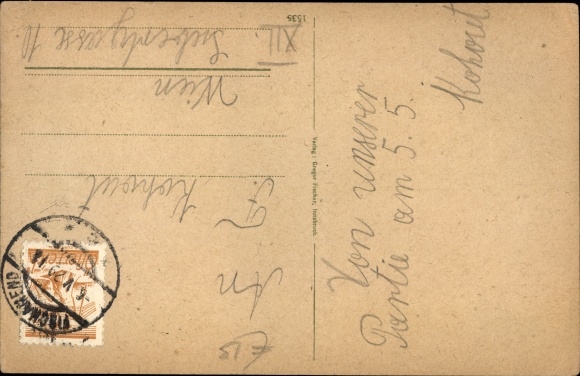 Von unserer
Partie am 5. 5.
Kohout
1535
Verlag: Gregor Fischer, Innsbruck.
An
Kohout
Wien
XII.
10
FISCHAMEND